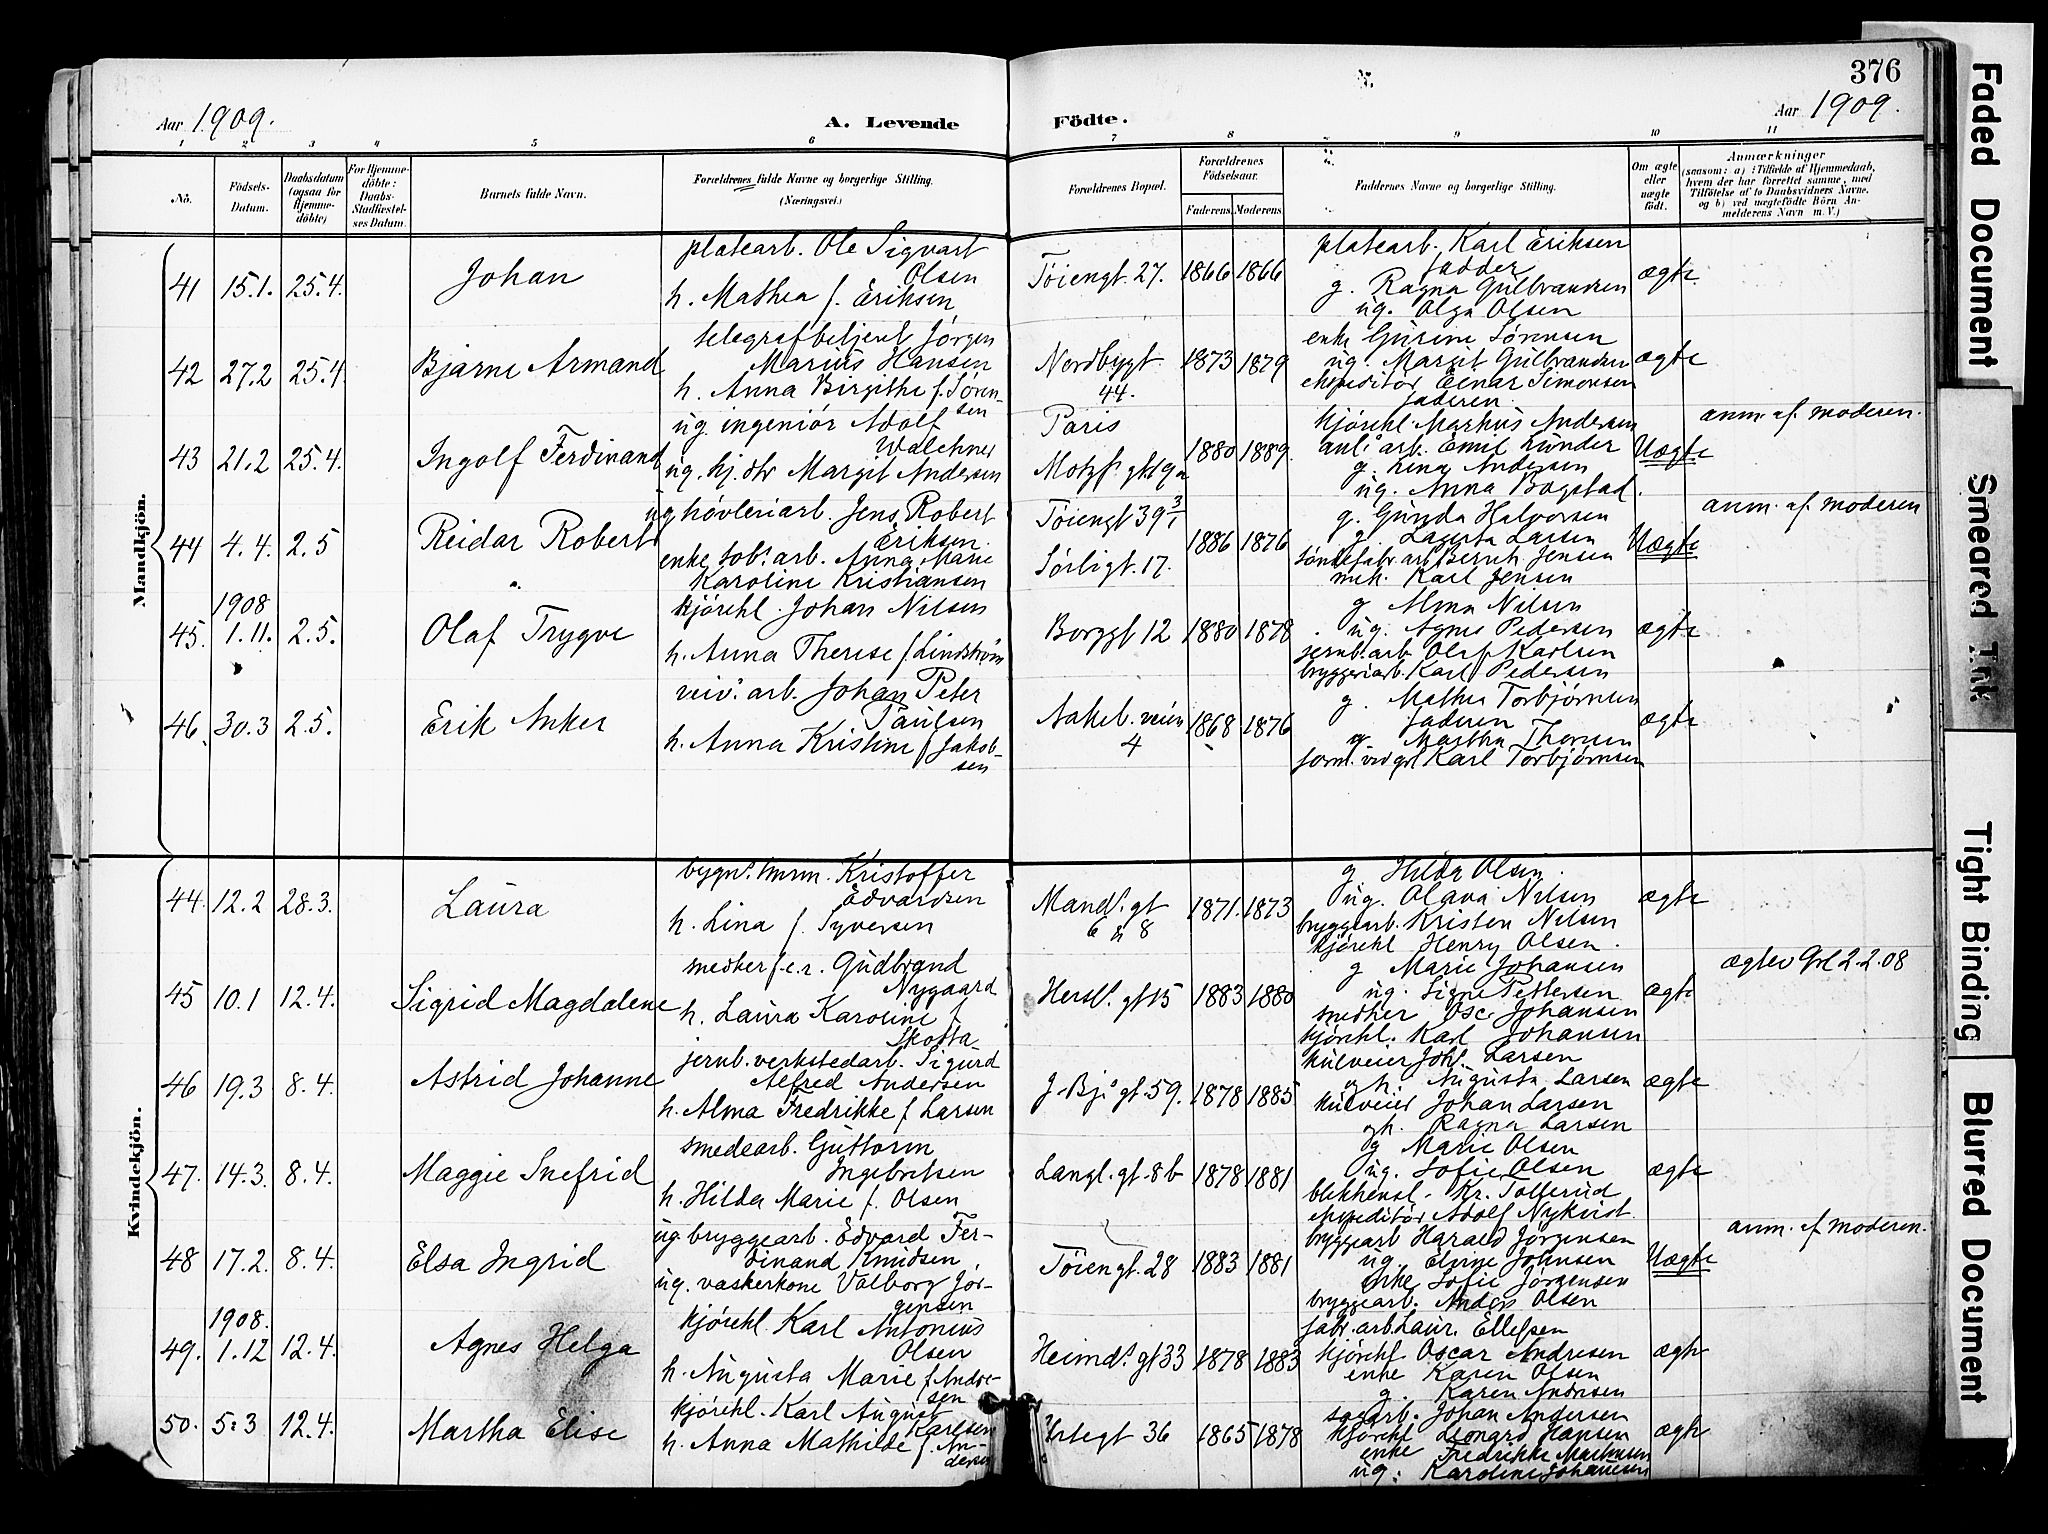 376
Aar 1909.
A. Levende
Födte.
Aar 1909.
1 2 3 4 5 6 7 8 9 10 11
No.
Födsels-
Datum.
Daabsdatum
(ogsaa for
Hjemme-
döbte)
For Hjemme-
döbte:
Daabs-
Stadfæstel-
ses Datum.
Barnets fulde Navn.
Forældrenes fulde Navne og borgerlige Stilling.
(Næringsvei.)
Forældrenes Bopæl.
Forældrenes
Födselsaar.
Faderens.
Moderens.
Faddernes Navne og borgerlige Stilling.
Om ægte
eller
uægte
födt.
Anmærkninger
(saasom: a) i Tilfælde af Hjemmedaab,
hvem der har forrettet samme, med
Tilföielse af to Daabsvidners Navne.
og b) ved uægtefödte Börn An-
melderens Navn m. V.)
Mandkjön.
41 15.1. 25.4. Johan
platearb. Ole Sigvart
Olsen
h. Mathea f. Eriksen
Tøiengt. 27. 1866 1866
platearb. Karl Eriksen
fadder
g. Ragna Gulbrandsen
ug. Olga Olsen
ægte
42 27.2 25.4. Bjarne Armand
telegrafbetjent Jørgen
Marius Hansen
h. Anna Birgithe f. Søren-
sen
Nordbygt.
44.
1873 1879
enke Gurine Sørensen
ug. Margit Gulbrandsen
expeditør Einar Simonsen
faderen
ægte
43 21.2 25.4. Ingolf Ferdinand
ug. ingeniør Adolf
Walchner
ug. hj. dtr Margit Andersen
Paris
Motzf. gt. 19a
1880 1889.
kjørekl Markus Andersen
anl. arb. Emil Lunder
g. Lina Andersen
ug. Anna Bogstad.
Uægte
anm. af moderen.
44 4.4. 2.5 Reidar Robert
ug høvleriarb. Jens Robert
Eriksen.
enke tob. arb. Anna Marie
Karoline Kristiansen
Tøiengt 39 3/1
Sørligt. 17.
1886 1876
g. Gunda Halvorsen
g. Lagerta Larsen
tøndefabr. arb Bernh Jensen
mek. Karl Jensen
Uægte
anm. af moderen
45. 1908
1.11. 2.5. Olaf Trygve
kjørekl. Johan Nilsen
h. Anna Therese f. Lindstrøm
Borggt 12 1880 1878
g Alma Nilsen
ug. Agnes Pedersen
jernb. arb Olaf Karlsen
bryggeriarb. Karl Pedersen
ægte
46. 30.3 2.5. Erik Anker
veiv. arb. Johan Peter
Paulsen
h. Anna Kristine f. Jakob-
sen
Aakeb. veien
4
1868 1876
g. Mathea Torbjørnsen
faderen
g. Martha Thoresen
form. ved grl Karl Torbjørnsen
ægte
Kvindekjön.
44. 12.2 28.3. Laura
bygn. tmrm. Kristoffer
Edvardsen
h. Lina f. Syversen
Mand. gt
6 a 8
1871. 1873
g Hilda Olsen.
ug. Olava Nilsen
bryggearb. Kristen Nilsen
kjørekl Henry Olsen.
ægte
45 10.1 12.4. Sigrid Magdalene
snedker f.c.r. Gudbrand
Nygaard
h. Laura Karoline f
Skotta
Hersl. gt 15 1883 1880
g Marie Johansen
ug. Signe Pettersen
snedker Osc. Johansen
kjørekl. Karl Johansen
ægte
ægtev Grl 2.2.08
46 19.3 8.4. Astrid Johanne
jernb. verkstedarb. Sigurd
Alfred Andersen
h. Alma Fredrikke f. Larsen
J. Bj. gt. 59. 1878 1885
kulveier Johl. Larsen
gh. Augusta Larsen
kulveier Johan Larsen
gh. Ragna Larsen
ægte
47. 14.3. 8.4. Maggie Snefrid
smedearb. Guttorm
Ingebretsen
h. Hilda Marie f. Olsen
Langl. gt. 8b 1878 1881
g Marie Olsen
ug. Sofie Olsen
blikkensl. Kr. Tollerud
expeditør Adolf Nykvist
ægte
48 17.2. 8.4. Elsa Ingrid
ug. bryggearb. Edvard Fer-
dinand Knudsen
ug. vaskerkone Valborg Jør-
gensen
Tøiengt. 28 1883 1881
bryggearb Harald Jørgensen
ug. Elvine Johnsen
enke Sofie Jørgensen
bryggearb. Anders Olsen
Uægte
anm. af moderen.
49. 1908.
1.12 12.4. Agnes Helga
kjørekl. Karl Antonius
Olsen
h. Augusta Marie f. Andre-
sen
Heimd. gt 33 1878 1883
fabr. arb Laur. Ellefsen
kjørekl Oscar Andresen
enke Karen Olsen
g. Karen Andresen
ægte
50. 5.3 12.4. Martha Elise
kjørekl. Karl August
Karlsen
h. Anna Mathilde f. An-
dersen
Urtegt 36 1865 1878
sagarb. Johan Andersen
kjørekl Leonard Hansen
enke Fredrikke Markussen
ug. Karoline Johansen
ægte
Faded Document
Smeared Ink
Tight Binding
Blurred Document